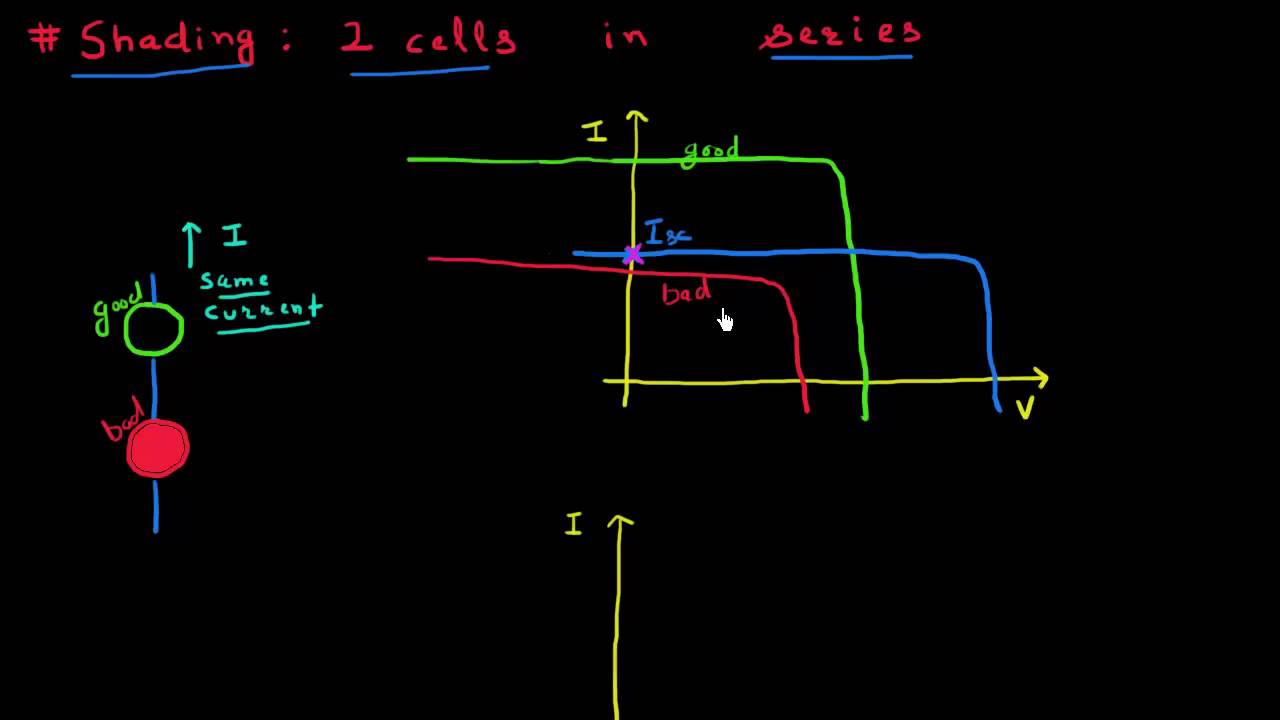 # Shading: 2 cells in series
I
good
Isc
bad
V
I
same
current
good
bad
I